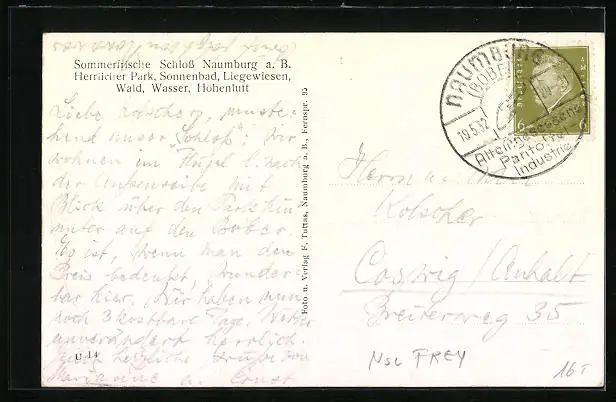 Sommerfrische Schloß Naumburg a. B.
Herrlicher Park, Sonnenbad, Liegewiesen,
Wald, Wasser, Höhenluft
Liebe Kolscherg, umste-
hend unser Schloß! Wir
wohnen im Flügel l. nach
der Außenseite mit
Blick über den Park hin
unter auf den Bober.
Es ist, wenn man den
Preis bedenkt, wunder-
bar hier. Wir haben nun
noch 3 kostbare Tage. Wetter
unverändert herrlich.
herzliche Grüße von
Marianne u. Ernst
U 14
Foto u. Verlag F. Tuttas, Naumburg a. B., Fernspr. 95
NAUMBURG
(BOBER)
19.5.32
Altein
Industrie
6 6
Herrn u.
Kolscher
Coswig / Anhalt
Breiteweg 35
Nsl FREY
16